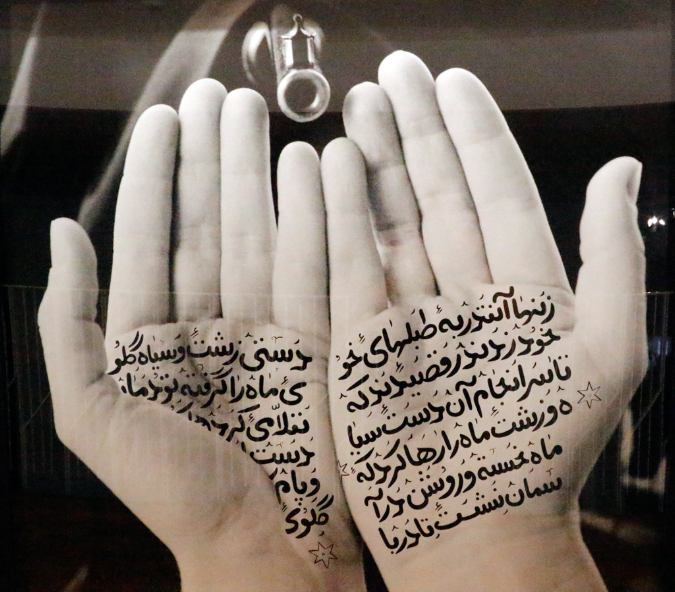 زنها آنقدر به طبلهای خو
خود زدند رقصیدند که
تا سرانجام آن دست سیا
ه و زشت ماه را رها کرد که
ماه خسته و روشن در آ
سمان نشست تا دریا
دستی زشت و سیاه گلو
ی ماه را گرفته بود ماه
تقلای
دست
گلوی